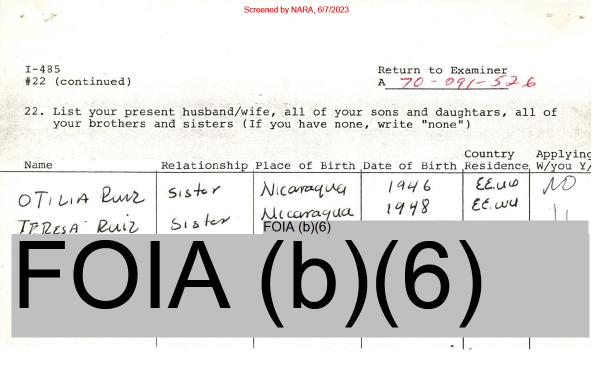 Screened by NARA, 6/7/2023
I-485 Return to Examiner
#22 (continued) A 70-091-526
22. List your present husband/wife, all of your sons and daughtars, all of
your brothers and sisters (If you have none, write "none")
Country Applying
Name Relationship Place of Birth Date of Birth Residence W/you Y/
OTILIA RUIZ Sister Nicaragua 1946 EE.UU NO
TERESA RUIZ Sister Nicaragua 1948 EE.UU 11
FOIA (b)(6)
FOIA (b)(6)